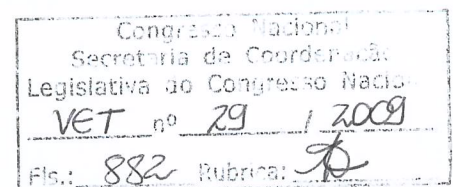 Congresso Nacional
Secretaria de Coordenação
Legislativa do Congresso Nacio
VET nº 29 / 2009
Fls.: 882 Rubrica: